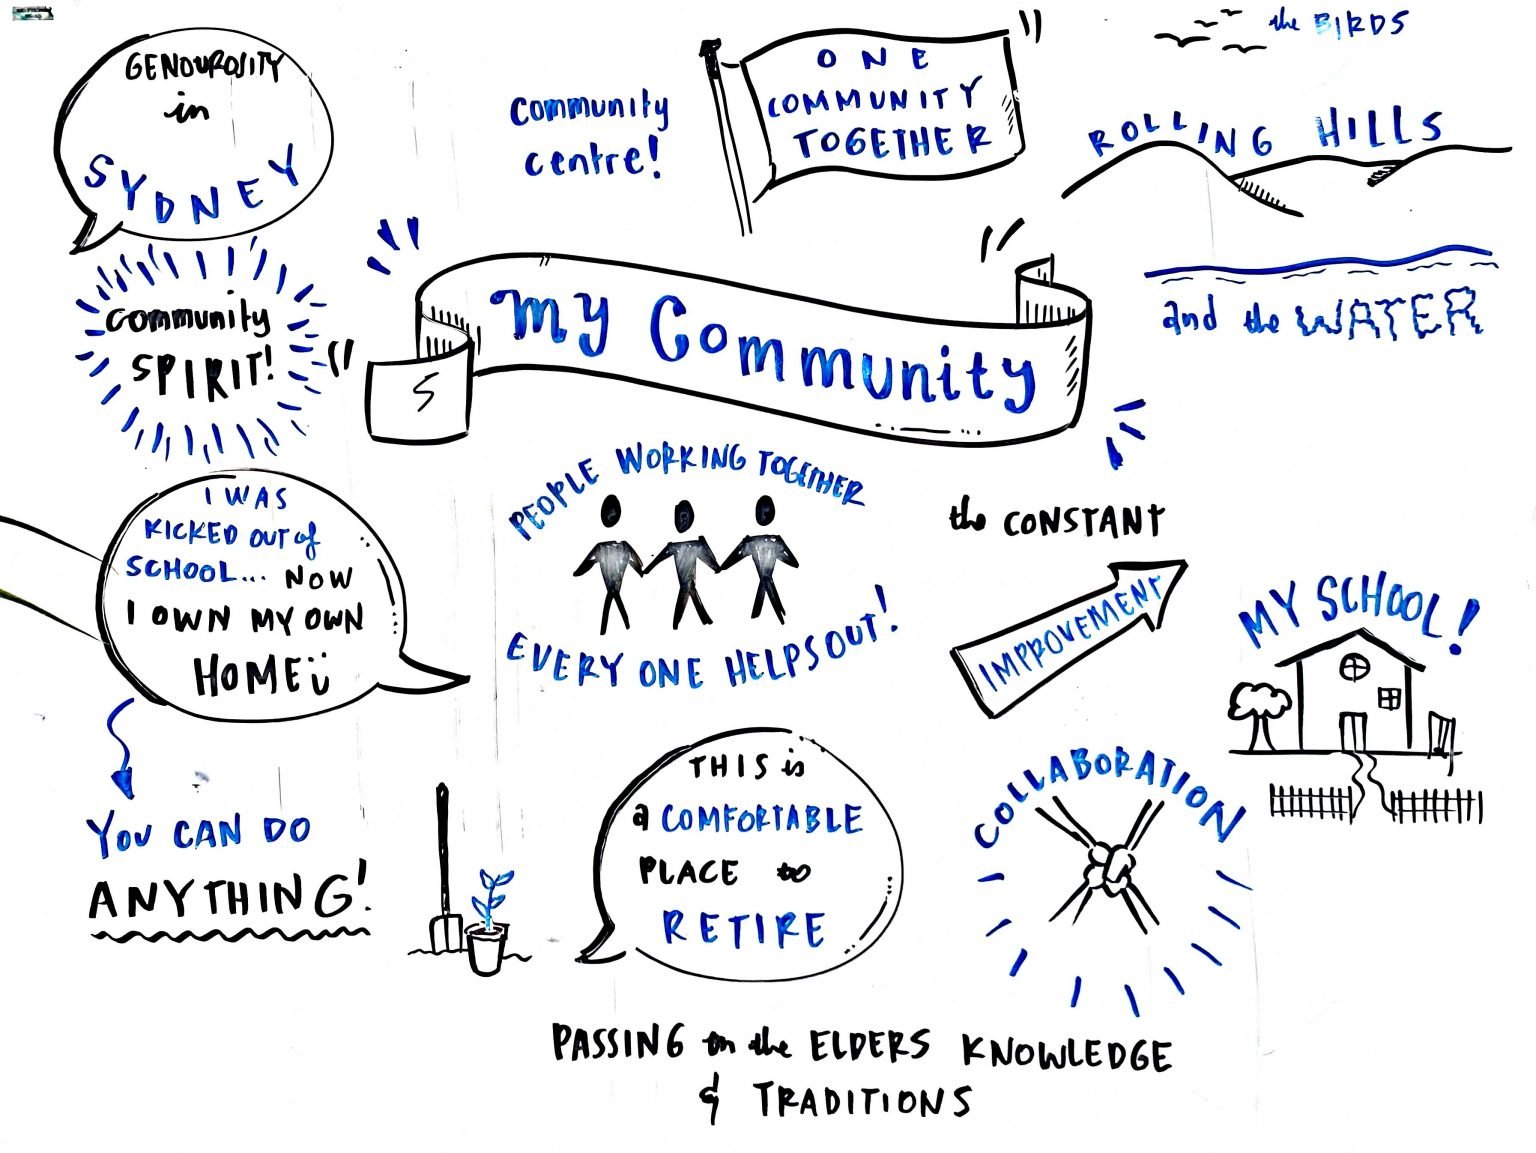 GENOUROSITY
in
SYDNEY
community
centre!
ONE
COMMUNITY
TOGETHER
the BIRDS
ROLLING HILLS
and the WATER
community
SPIRIT!
My Community
S
PEOPLE WORKING TOGETHER
EVERY ONE HELPS OUT!
I WAS
KICKED OUT of
SCHOOL... NOW
I OWN MY OWN
HOME
YOU CAN DO
ANYTHING!
the CONSTANT
IMPROVEMENT
MY SCHOOL!
THIS is
a COMFORTABLE
PLACE to
RETIRE
COLLABORATION
PASSING on the ELDERS KNOWLEDGE
& TRADITIONS